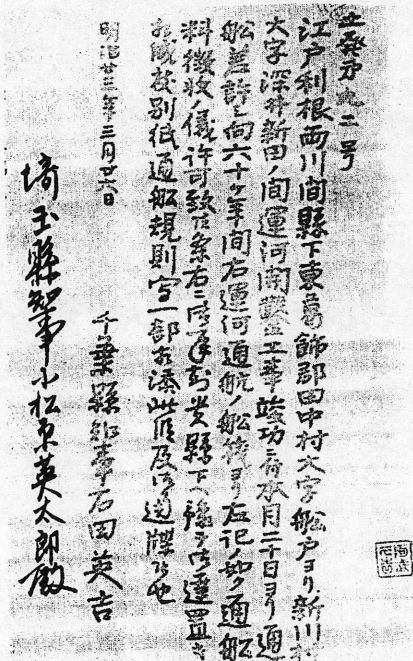 土発第九二号
江戸利根両川間縣下東葛飾郡田中村大字船戸ヨリ新川村
大字深井新田ノ間運河開鑿工事竣功ニ付來月二十日ヨリ通
船差許シ向六十ヶ年間右運河通航ノ船筏ヨリ左記ノ如ク通船
料徴收ノ儀許可致候条右ニ御承知貴縣下ヘ
相成度別紙通船規則写一部相添此段及御通牒候也
明治廿三年三月廿六日
千葉縣知事石田英吉
埼玉縣知事小松原英太郎殿